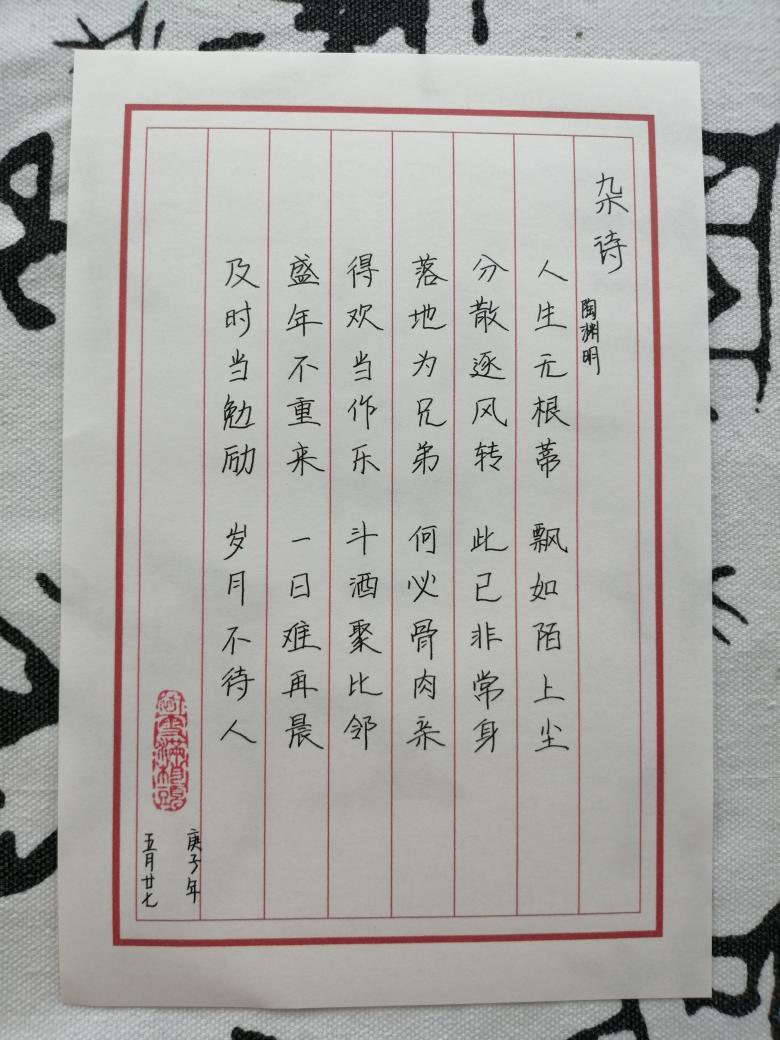 杂诗
陶渊明
人生无根蒂 飘如陌上尘
分散逐风转 此已非常身
落地为兄弟 何必骨肉亲
得欢当作乐 斗酒聚比邻
盛年不重来 一日难再晨
及时当勉励 岁月不待人
庚子年
五月廿七